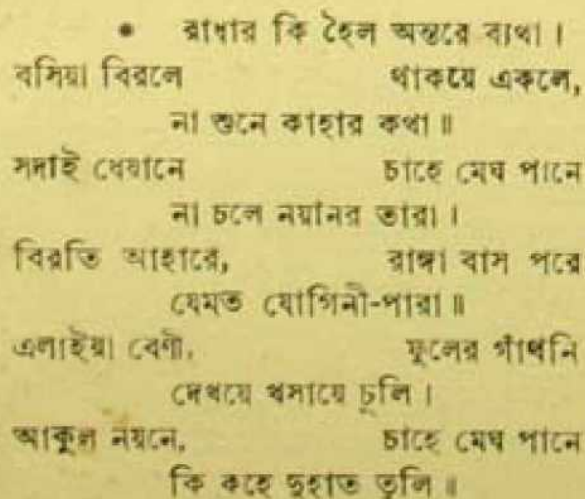 • রাধার কি হৈল অন্তরে ব্যথা।
বসিয়া বিরলে থাকয়ে একলে,
না শুনে কাহার কথা॥
সদাই ধেয়ানে চাহে মেঘ পানে
না চলে নয়ানর তারা।
বিরতি আহারে, রাঙ্গা বাস পরে
যেমত যোগিনী-পারা॥
এলাইয়া বেণী, ফুলের গাঁথনি
দেখয়ে খসায়ে চুলি।
আকুল নয়নে, চাহে মেঘ পানে
কি কহে দুহাত তুলি॥